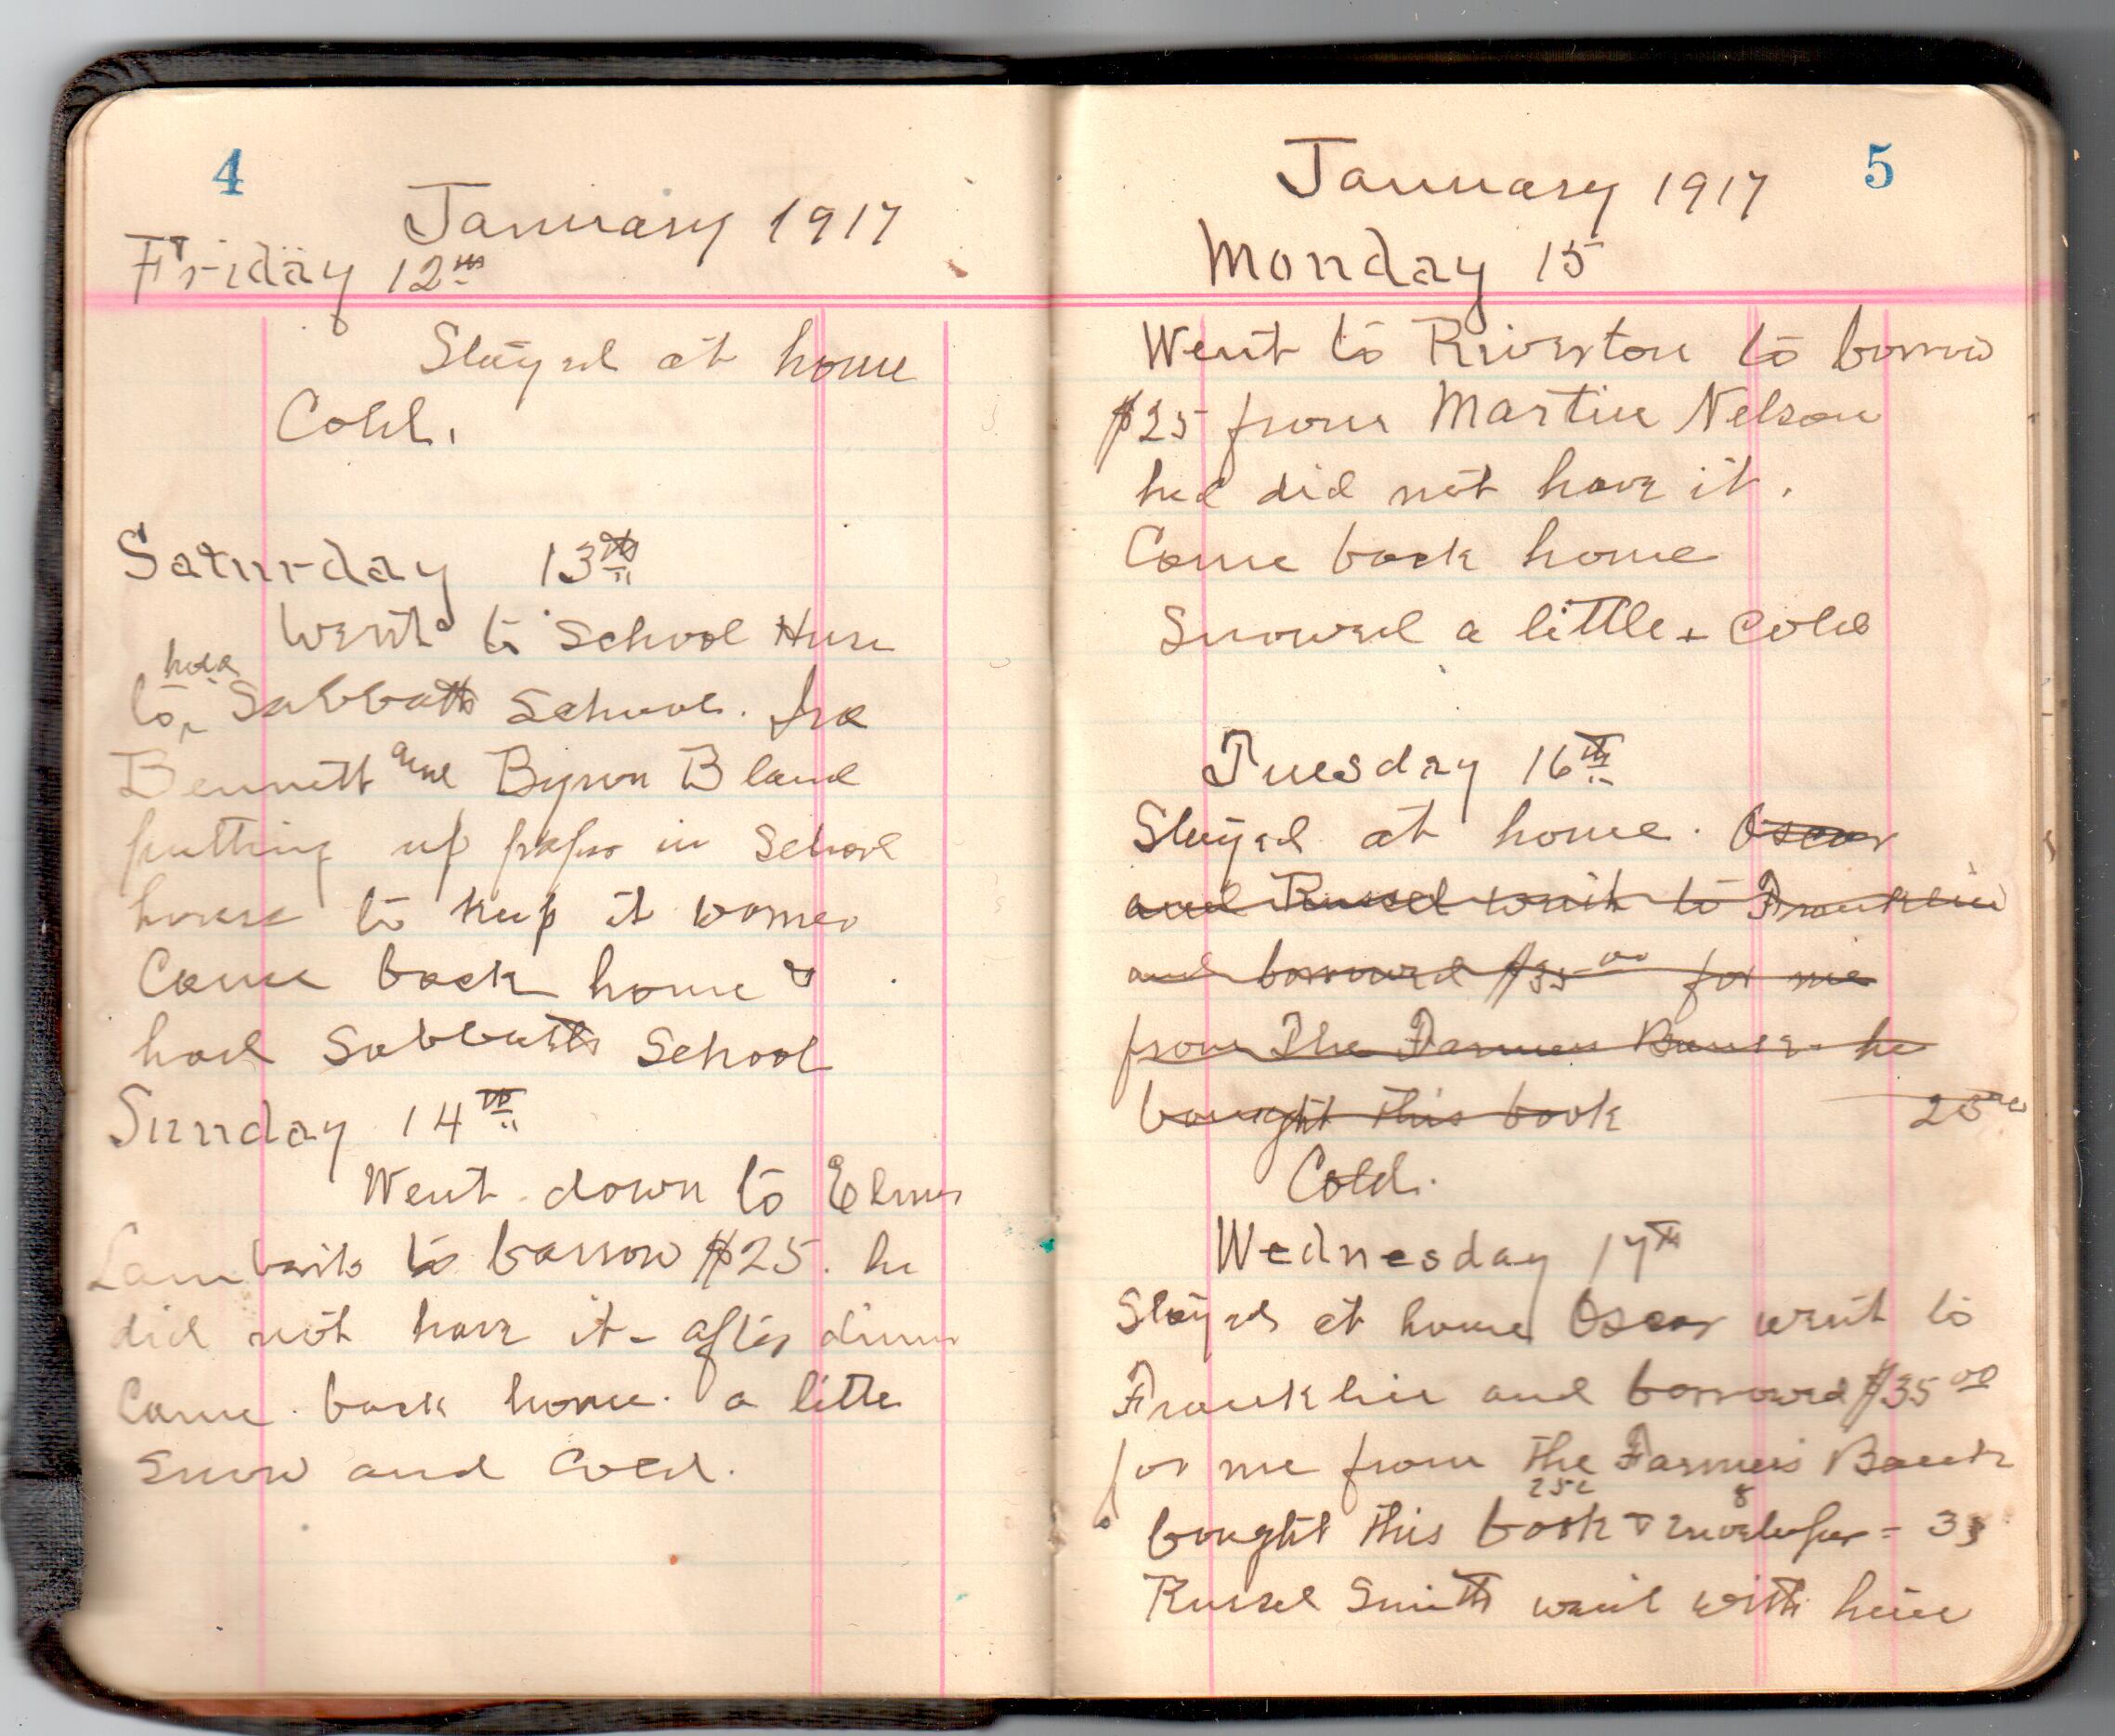 4
January 1917
Friday 12th
Stayed at home
Cold.
Saturday 13th
Went to School Huse
hold
to Sabbath School. Ira
Bennett and Byron Bland
putting up paper in School
house to keep it warmer
Came back home &
had Sabbath School
Sunday 14th
Went down to Elmer
Lambert's to barrow $25. he
did not have it - after dinner
Came back home. a little
Snow and Cold.
5
January 1917
Monday 15
Went to Riverton to borrow
$25 from Martin Nelson
he did not have it.
Come back home
Snowed a little + Cold
Tuesday 16th
Stayed at home. Oscar
and Russel went to Franklin
and borrowed $35 00 for me
from The Farmers he
bought this book 25
Cold.
Wednesday 17th
Stayed at home Oscar went to
Franklin and borrowed $35 00
for me from The Farmers Bank
25c 8
bought this book & Envelopes = 33
Russel Smith went with him